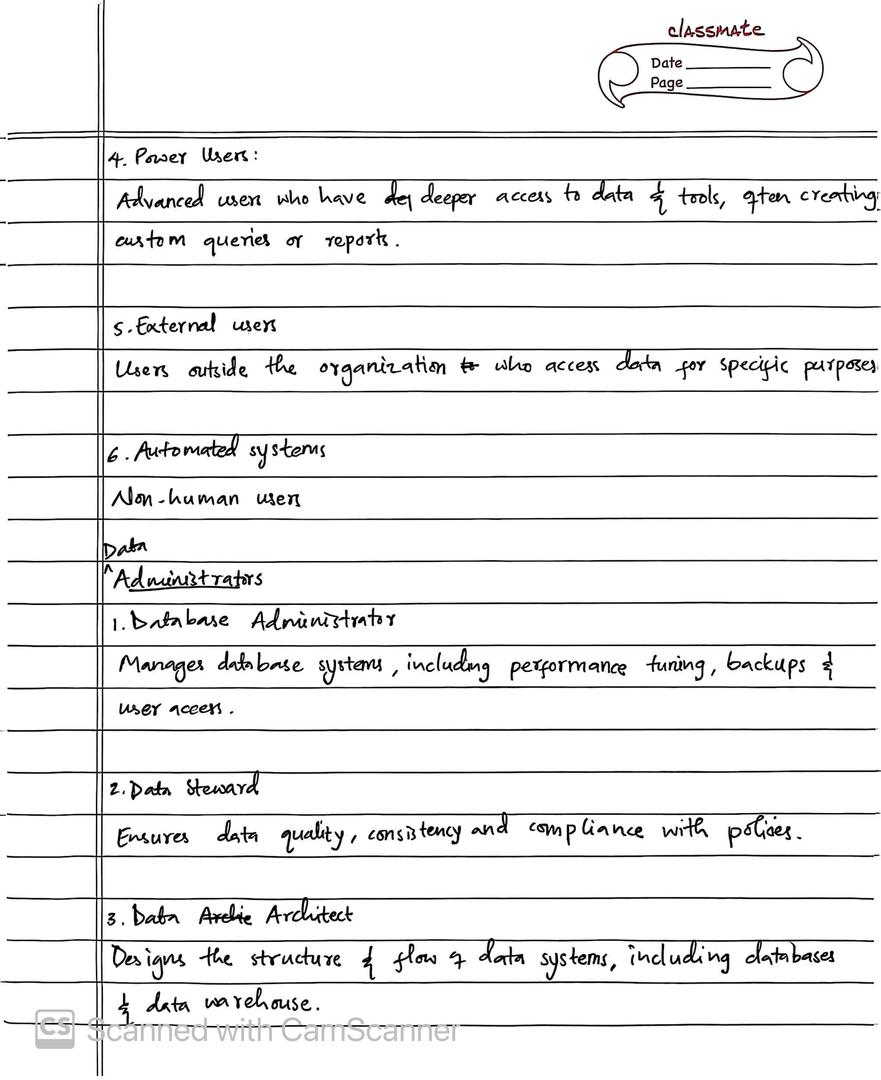 classmate
Date
Page
4. Power Users:
Advanced users who have deeper access to data & tools, often creating
custom queries or reports.
5. External users
Users outside the organization to who access data for specific purposes.
6. Automated systems
Non-human users
Data
^Administrators
1. Database Administrator
Manages database systems, including performance tuning, backups &
user access.
2. Data Steward
Ensures data quality, consistency and compliance with policies.
3. Data Archie Architect
Designs the structure & flow of data systems, including databases
& data warehouse.
CS Scanned with CamScanner